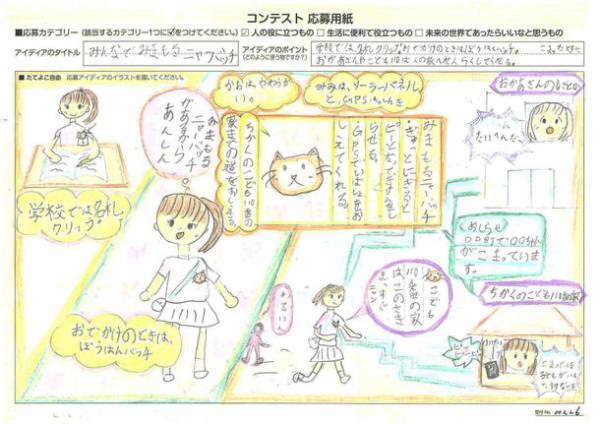 コンテスト 応募用紙
■応募カテゴリー（該当するカテゴリー1つに☑をつけてください。） ☑ 人の役に立つもの □ 生活に便利で役立つもの □ 未来の世界であったらいいなと思うもの
アイディアのタイトル みんなでみまもるニャバッチ
アイディアのポイント（どのように使う物ですか？）
学校では名札クリップ おでかけのときはぼうはんバッチ。
■たてよこ自由 応募アイディアのイラストを描いてください。
みまもる
ニャバッチ
があるから
あんしん
学校では名札
クリップ
かおはやわらかい。
みみは、ソーラーパネル
と、GPS
みまもるニャーバッチ
・ぎゅっとにぎると
らせる。
・GPSで
しえてくれる。
ちかくのこども110番の
家までの道をおしえる。
おかあさんの
たいへんだ
〈おしらせ〉
〇〇町で〇〇ちゃん
がこまっていま
す。
ちかくのこども110番の家
こども
110番の家
は、このさき
まっすぐ
ニャン
わるい人
おでかけのときは、
ぼうはんバッチ